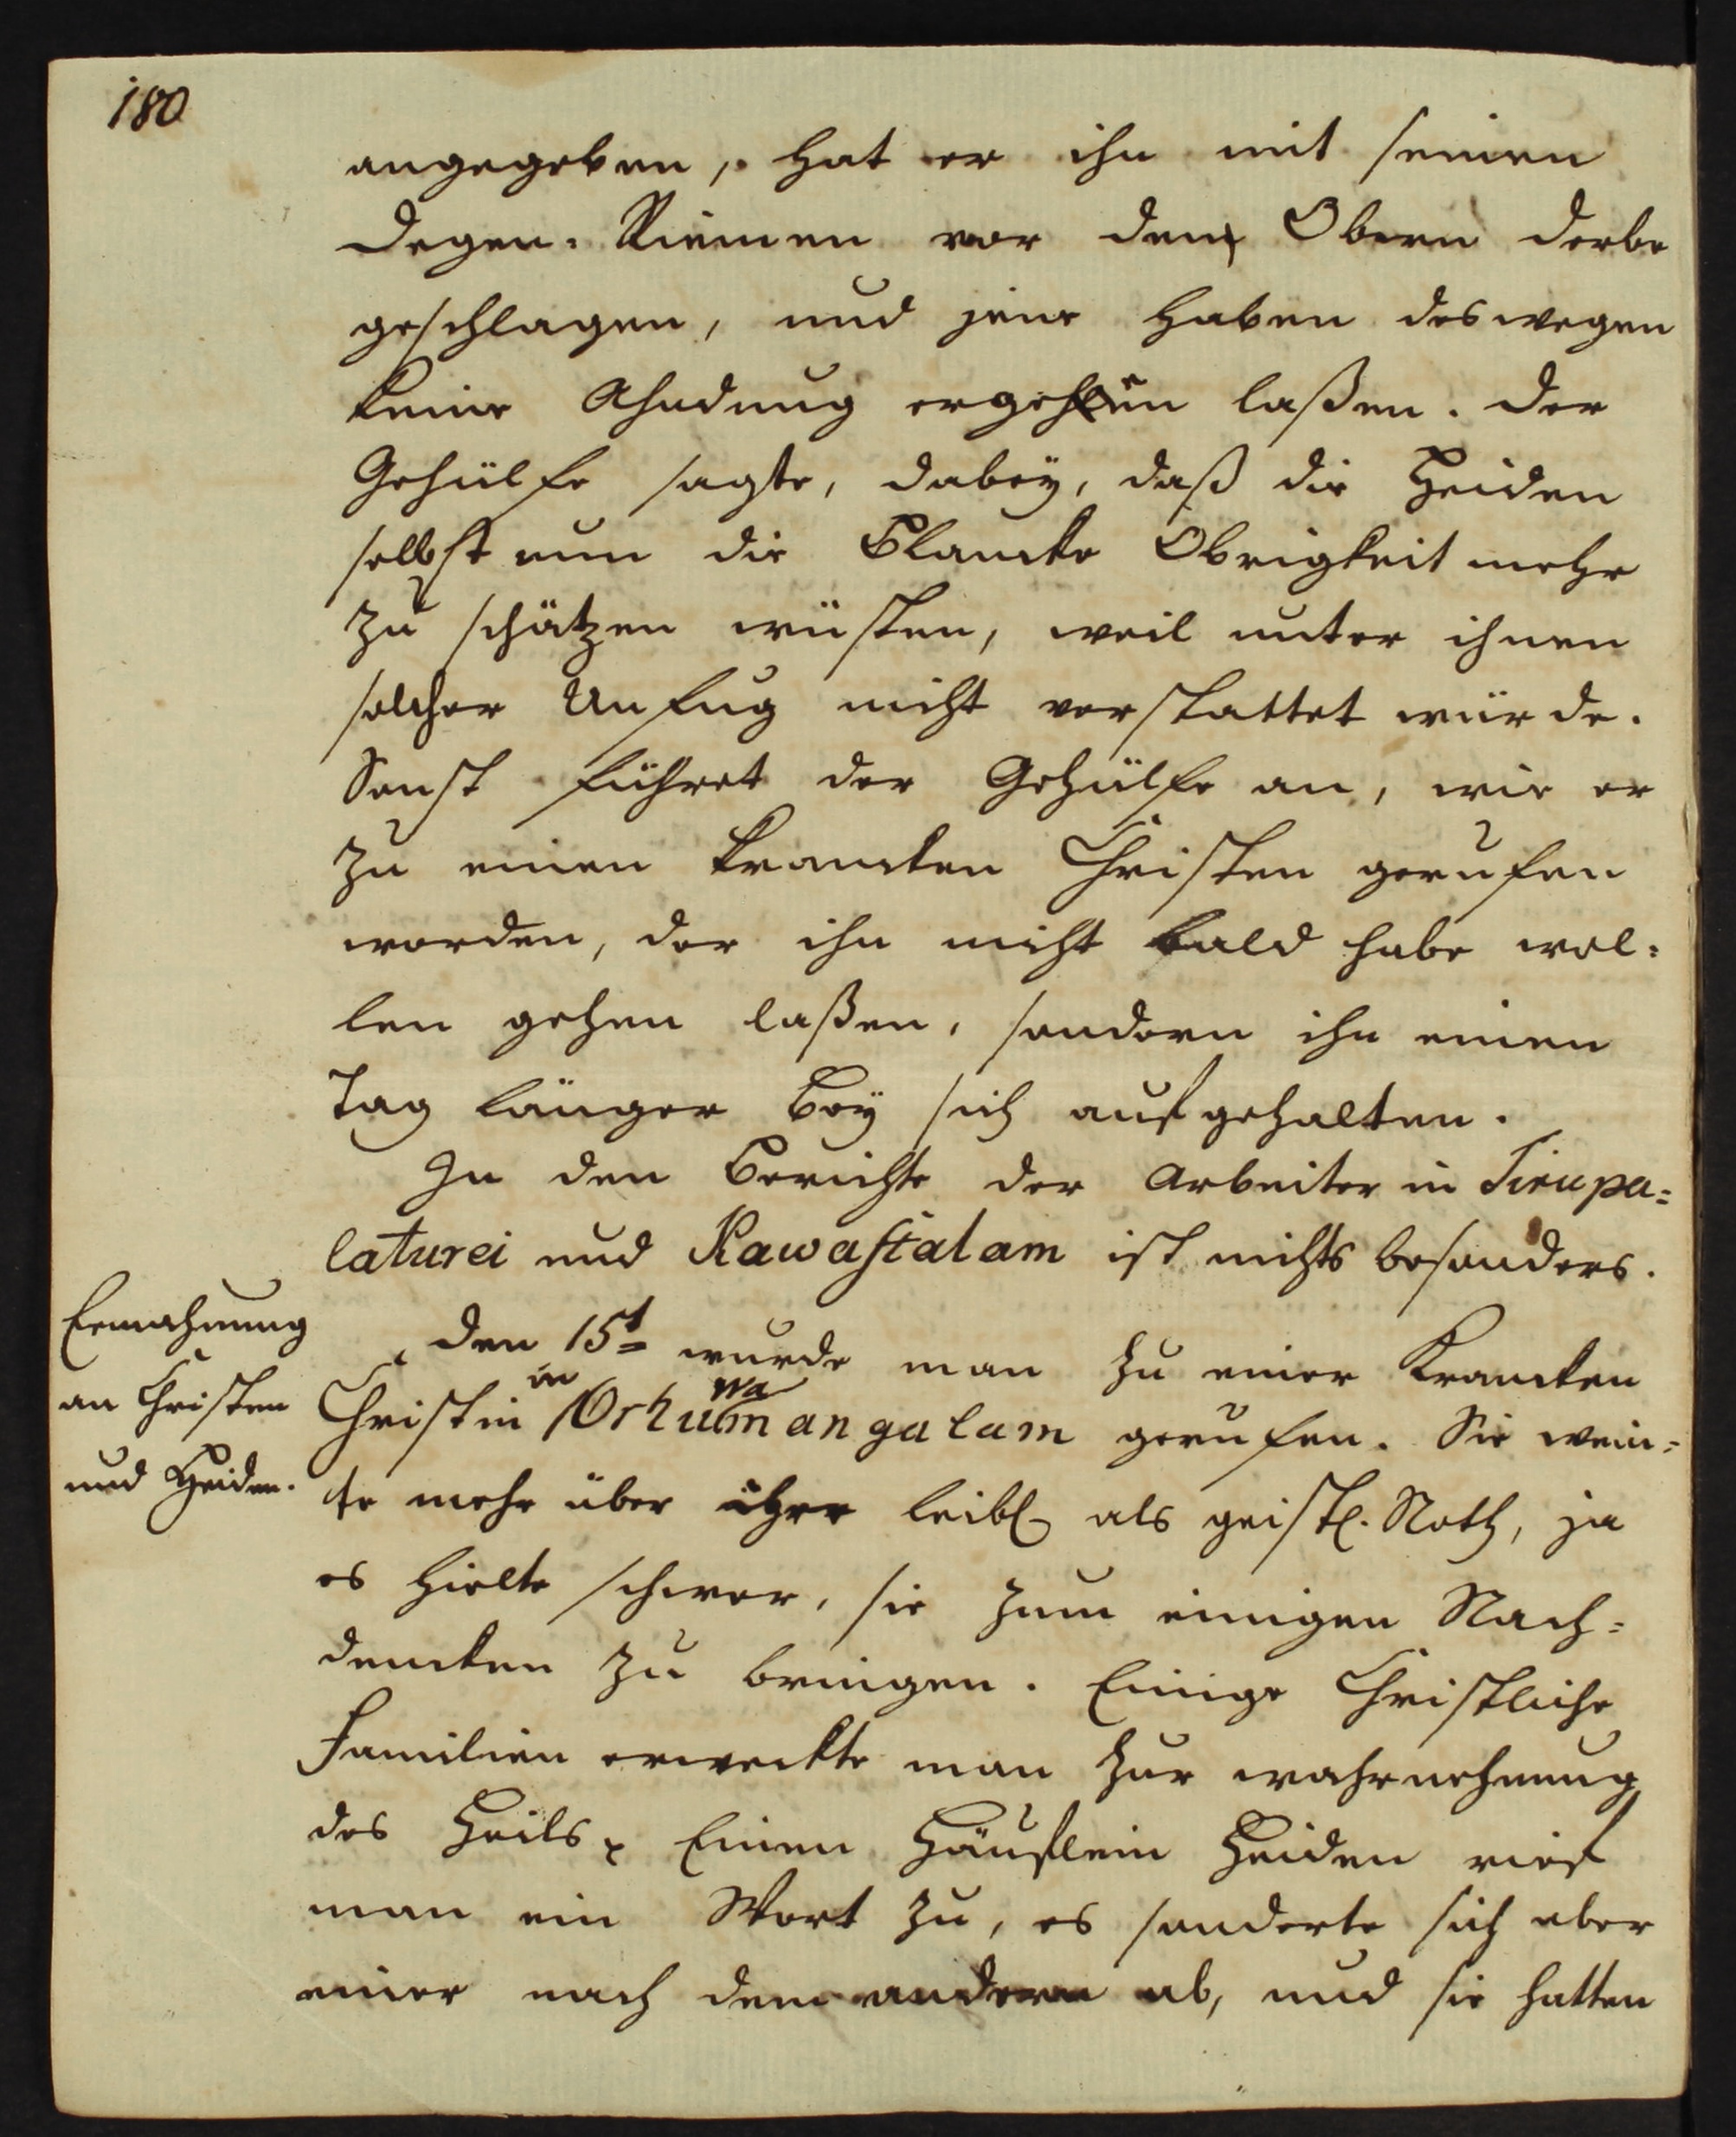 180
angegeben, hat er ihn mit seinen
Degen-Riemen vor dem Obern derbe
geschlagen, und jene haben deswegen
keine Ahndung ergehen laßen. Der
Gehülfe sagte, dabey, daß die Heiden
selbst nun die Blancke Obrigkeit mehr
zu schätzen wüsten, weil unter ihnen
solcher Unfug nicht verstattet würde.
Sonst führet der Gehülfe an, wie er
zu einen krancken Christen gerufen
worden, der ihn nicht bald habe wol-
len gehen laßen, sondern ihn einen
Tag länger bey sich aufgehalten.
In den Berichte der Arbeiter in Tirupa-
laturei und Kawastalam ist nichts besonders.
Ermahnung
an Christen
und Heiden.
Den 15t wurde man zu einer Krancken
Christin in Orhuwamangalam gerufen. Sie wein-
te mehr über ihre leibl als geistl. Noth, ja
es hielte schwer, sie zum einigen Nach-
dencken zu bringen. Einige Christliche
Familien erweckte man zur wahrnehmung
des Heils. Einen Häuflein Heiden rief
man ein Wort zu, es sonderte sich aber
einer nach dem andern ab, und sie hatten